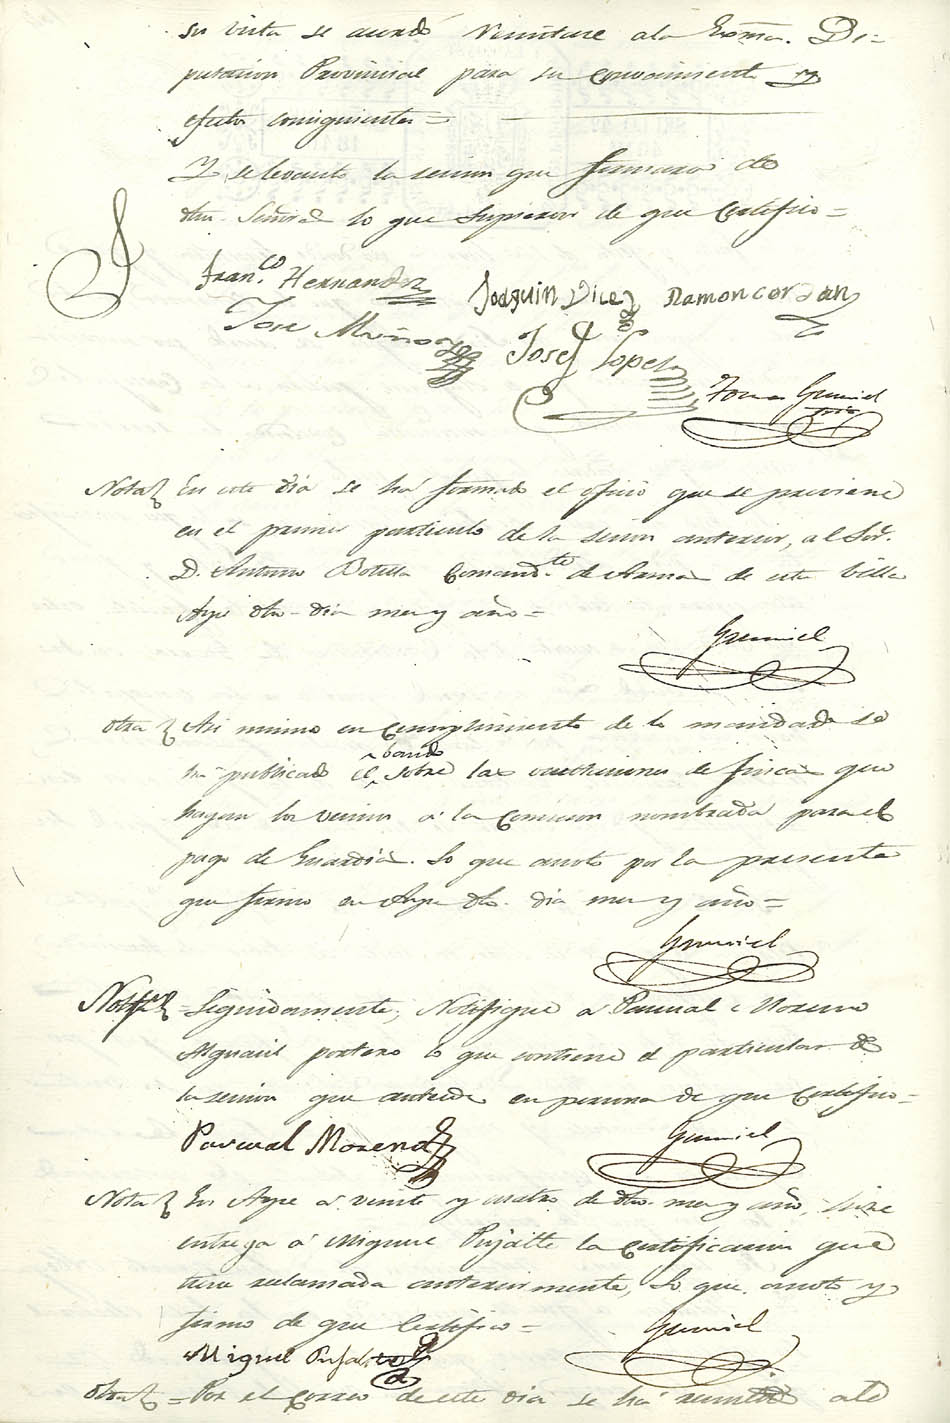 su vista se acordó remitirse a la Exma. Di=
putacion Provincial para su conocimiento y
efectos consiguientes=
Y se levantó la sesion que firmaron dhos
dhos. Señores los que supieron de que certifico=
Fran.co Hernandez Joaquin Diez Ramon cordan
Jose Muñoz Jose Lopez
Tomas Gumiel
Nota En este dia se ha formado el oficio que se previene
en el primer particular de la sesion anterior, al Sor.
D. Antonio Botella Comand.te de Armas de esta Villa
Aspe dho. dia mes y año=
Gumiel
Otra Asi mismo en cumplimiento de lo mandado se
ha publicado el bando sobre las relaciones de fincas que
hayan los vecinos a la Comision nombrada para el
pago de Guardia. Lo que anoto por la presente
que firmo en Aspe dho. dia mes y año=
Gumiel
Notif.on =Seguidamente, Notifique a Pascual Moreno
Alguacil portero lo que contiene el particular de
la sesion que antecede en persona de que Certifico=
Pascual Moreno Gumiel
Nota En Aspe a veinte y cuatro de dho. mes y año, hice
entrega a Miguel Pujalte la certificacion que
tiene reclamada anteriormente, Lo que anoto y
firmo de que Certifico=
Gumiel
Miguel Pujalte
Otra =Por el Correo de este dia se ha remitido a la